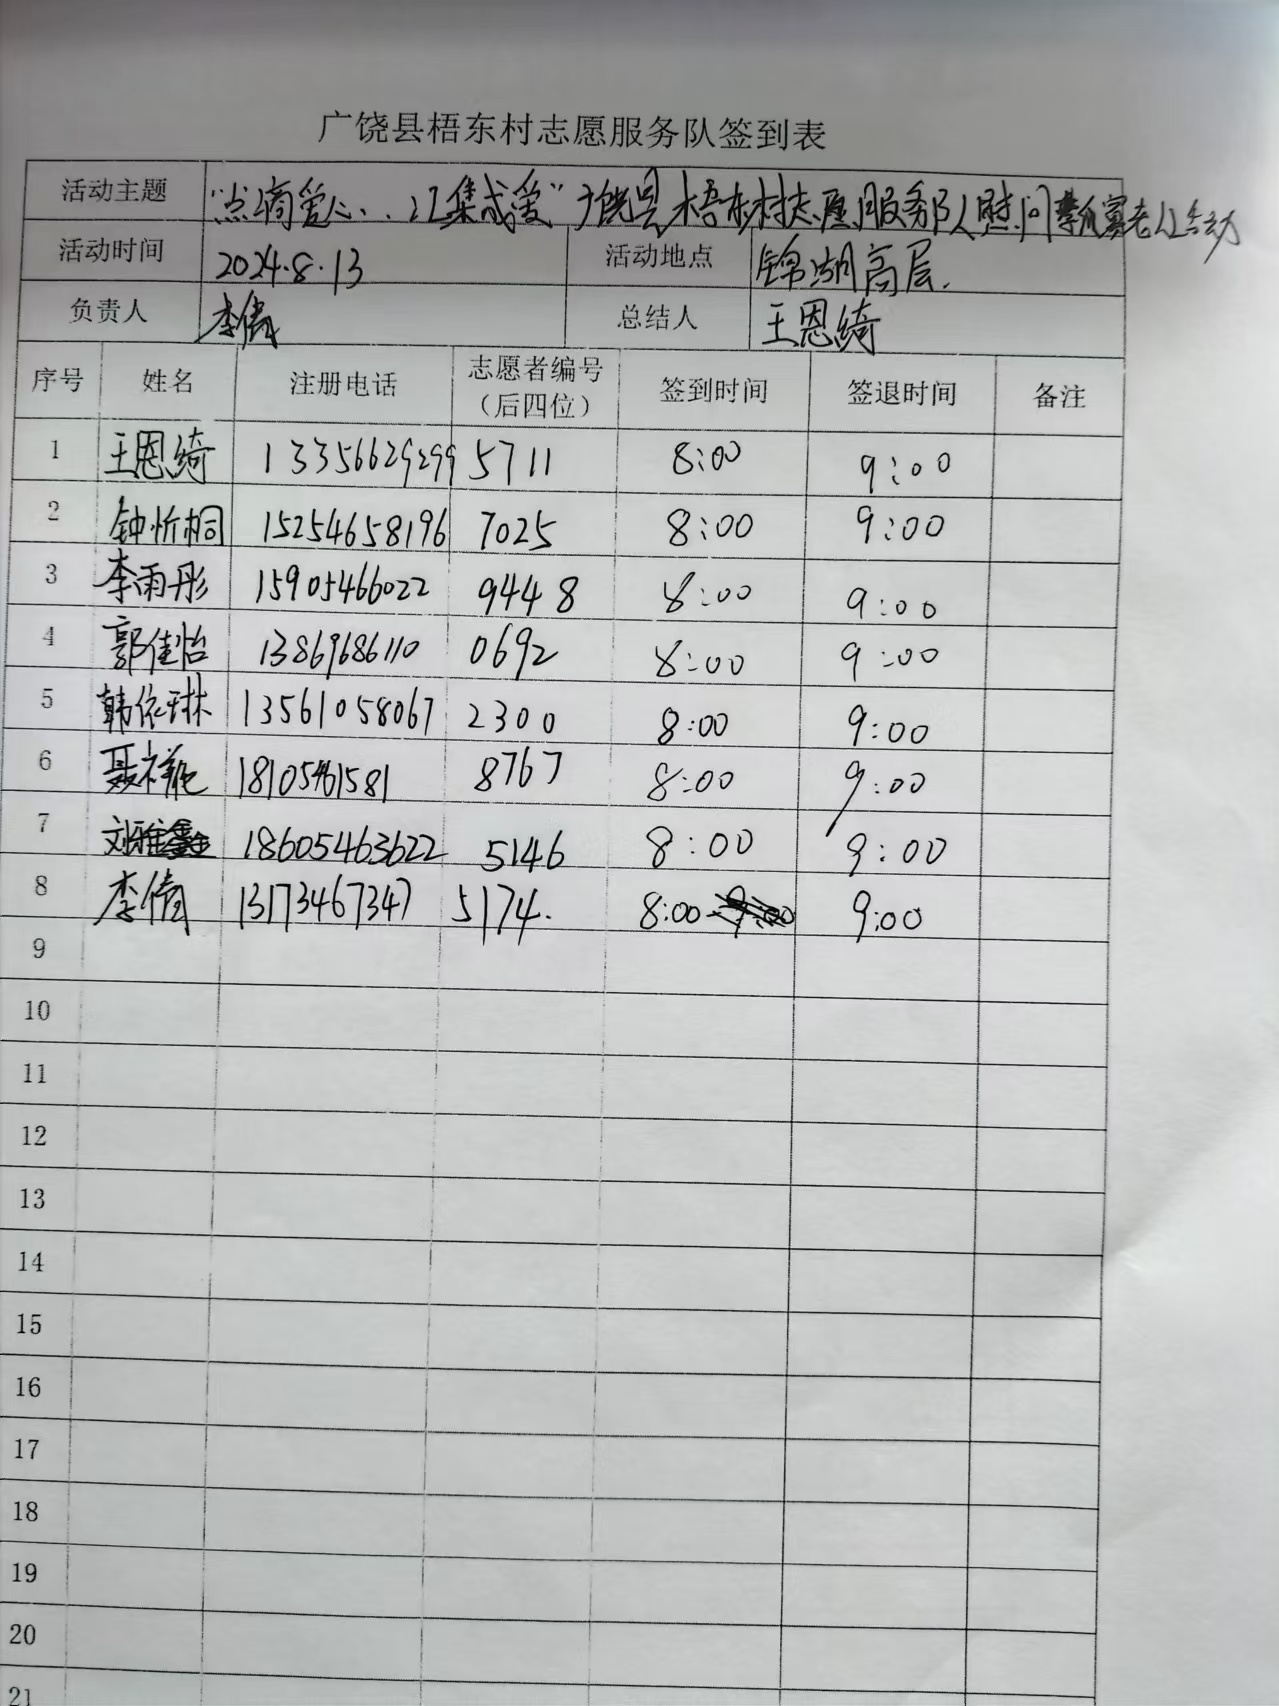 广饶县梧东村志愿服务队签到表
活动主题 "点滴爱心..汇集成爱"广饶县梧东村志愿服务队慰问 老人活动
活动时间 2024.8.13 活动地点 锦湖高层.
负责人 李倩 总结人 王恩绮
序号 姓名 注册电话 志愿者编号（后四位） 签到时间 签退时间 备注
1 王恩绮 13356629299 5711 8:00 9:00
2 钟忻桐 15254658196 7025 8:00 9:00
3 李雨彤 15905466022 9448 8:00 9:00
4 郭佳怡 13869686110 0692 8:00 9:00
5 韩依琳 13561058067 2300 8:00 9:00
6 聂祥 18105461581 8767 8:00 9:00
7 刘雅鑫 18605463622 5146 8:00 9:00
8 李倩 13173467347 5174. 8:00 9:00
9
10
11
12
13
14
15
16
17
18
19
20
21